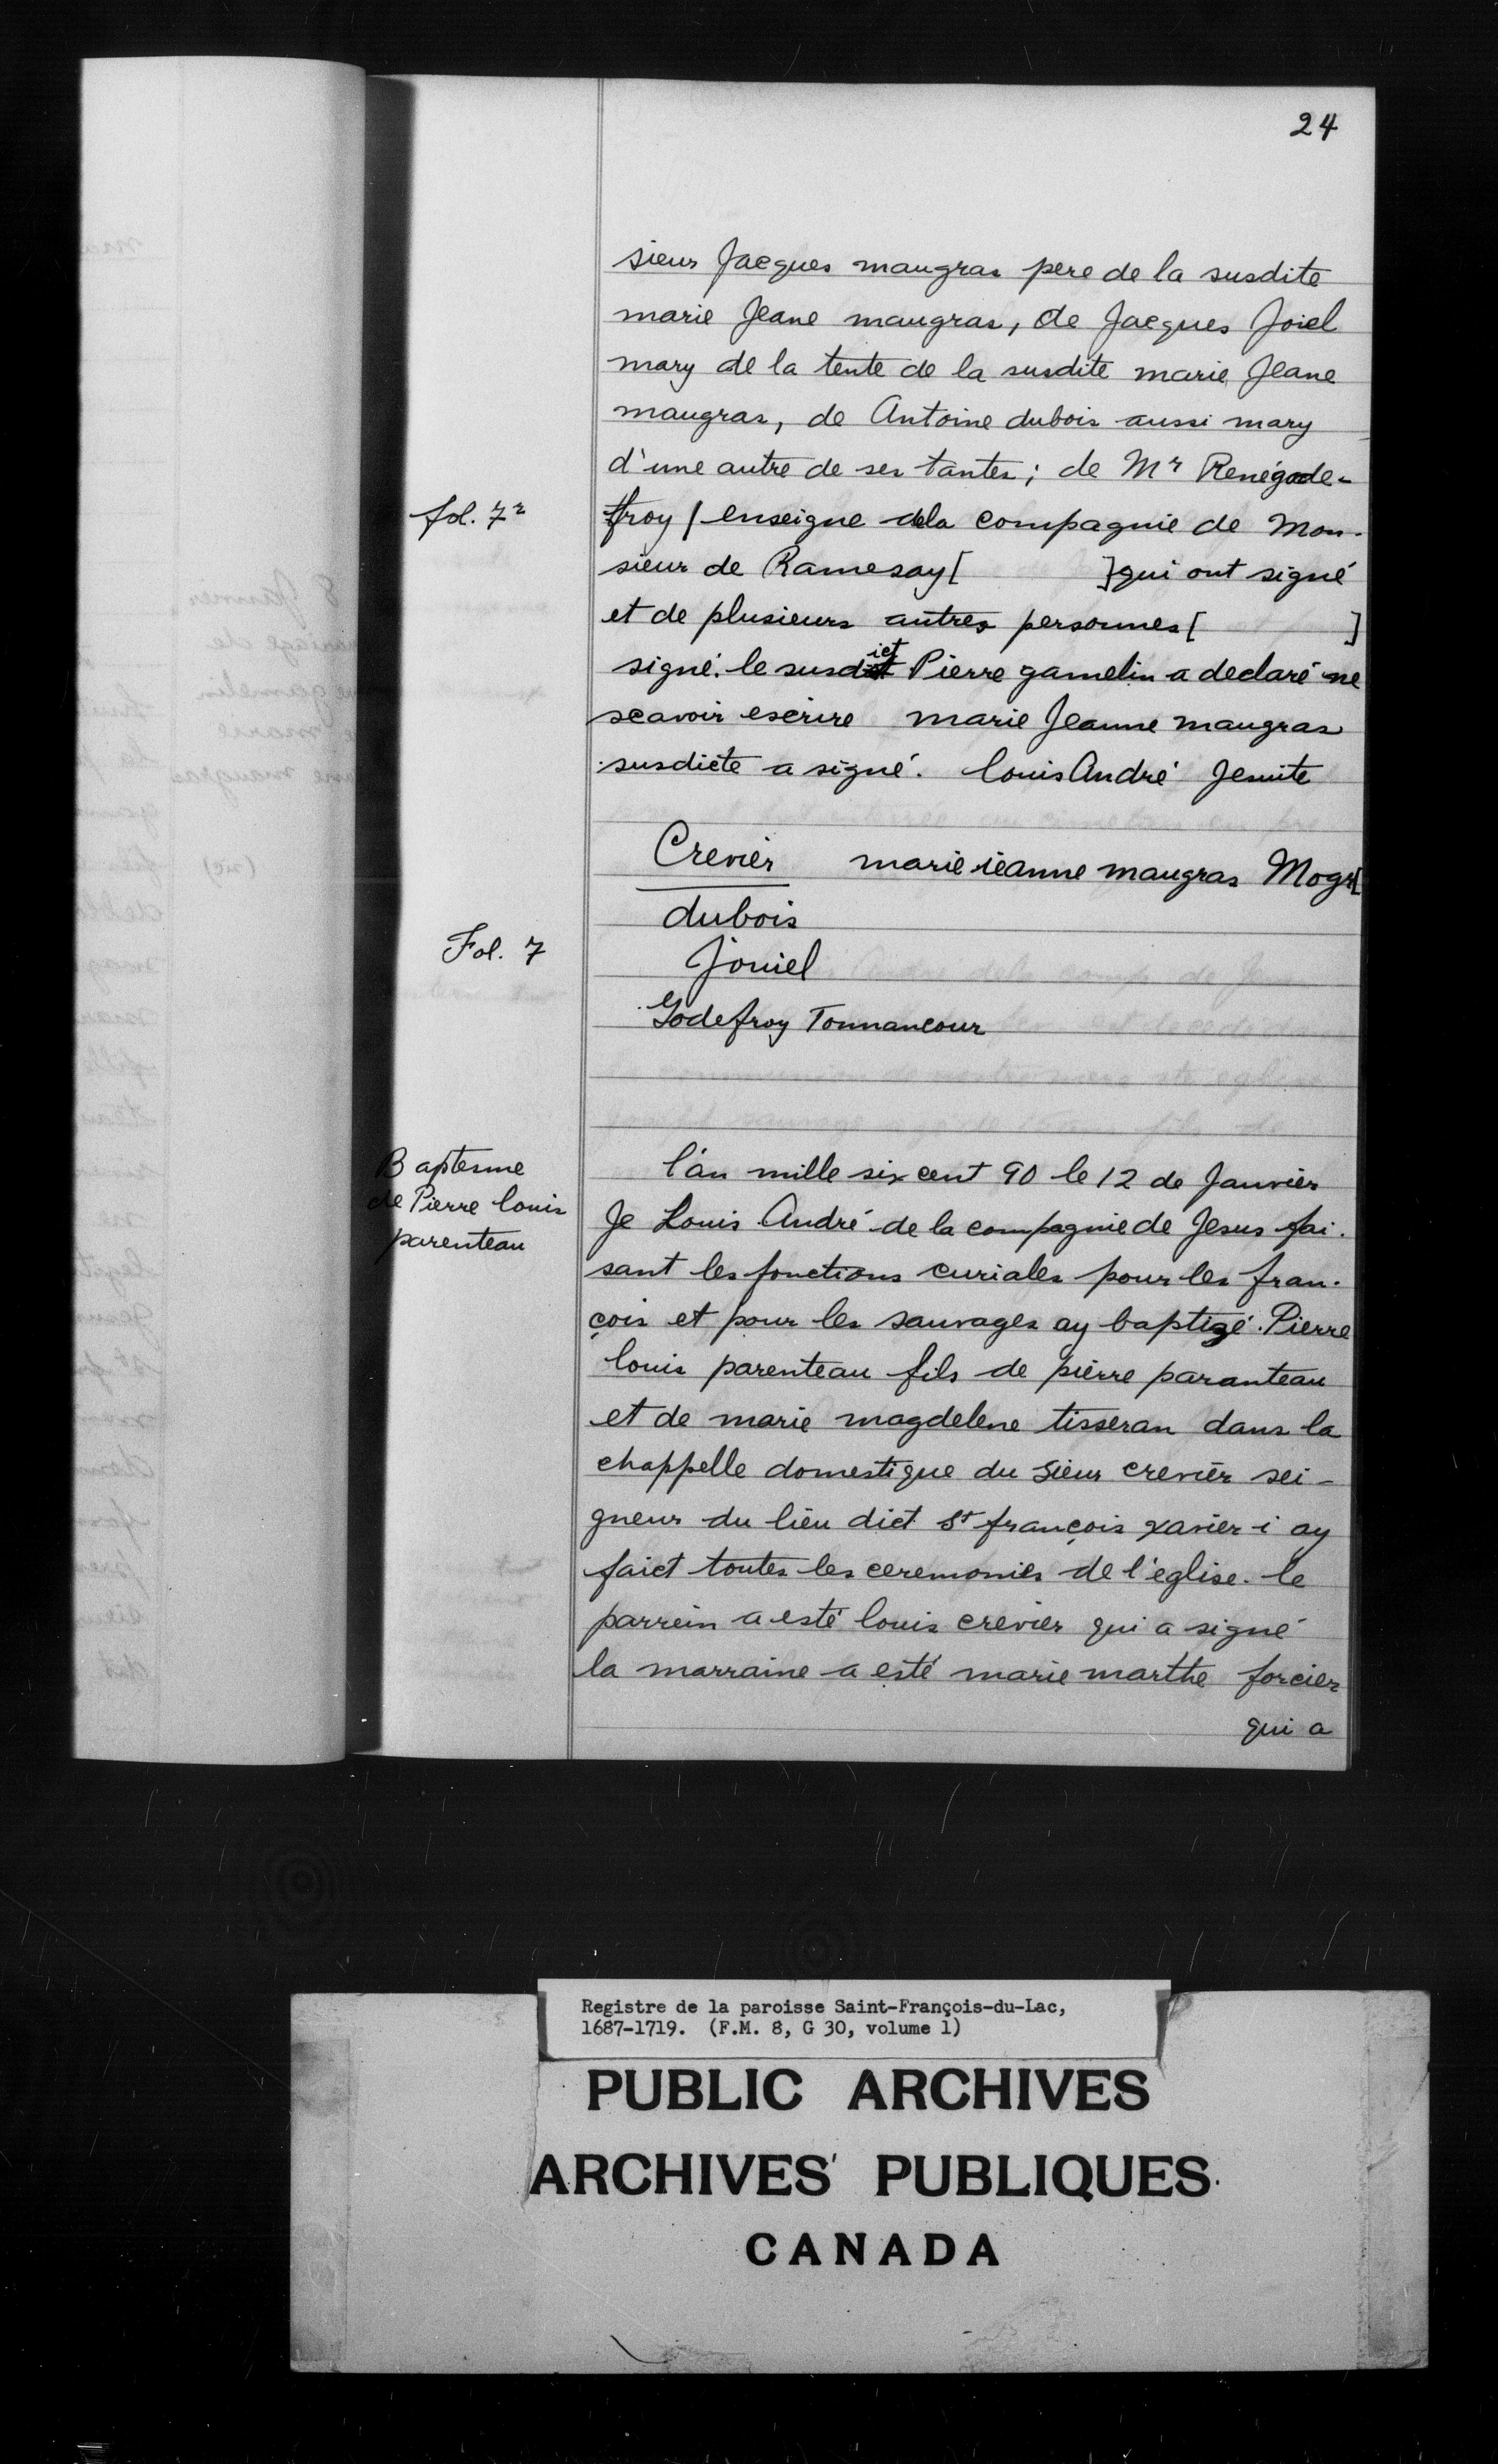 24
sieur Jacques maugras pere de la susdite
marie Jeane maugras, de Jacques Joiel
mary de la tente de la susdite marie Jeane
maugras, de Antoine dubois aussi mary
d'une autre de ses tantes; de Mr Renégode-
fol. 7r
froy / enseigne dela compagnie de Mon-
sieur de Ramesay [ ] qui ont signé
et de plusieurs autres personnes [ ]
signé. le susdict Pierre gamelin a declaré ne
scavoir escrire marie Jeanne maugras
susdicte a signé. louis André Jesuite
Crevier marie ieanne maugras Mogr[
dubois
Fol. 7
Jouiel
Godefroy Tonnancour
Baptesme
de Pierre louis
parenteau
l'an mille six cent 90 le 12 de Janvier
Je Louis André de la compagnie de Jesus fai-
sant les fonctions curiales pour les fran-
çois et pour les sauvages ay baptizé Pierre
louis parenteau fils de pierre paranteau
et de marie magdelene tisseran dans la
chappelle domestique du sieur crevier sei-
gneur du lieu dict St françois xavier i ay
faict toutes les ceremonies de l'eglise. le
parrein a esté louis crevier qui a signé
la marraine a esté marie marthe forcier
qui a
Registre de la paroisse Saint-François-du-Lac,
1687-1719. (F.M. 8, G 30, volume 1)
PUBLIC ARCHIVES
ARCHIVES PUBLIQUES
CANADA